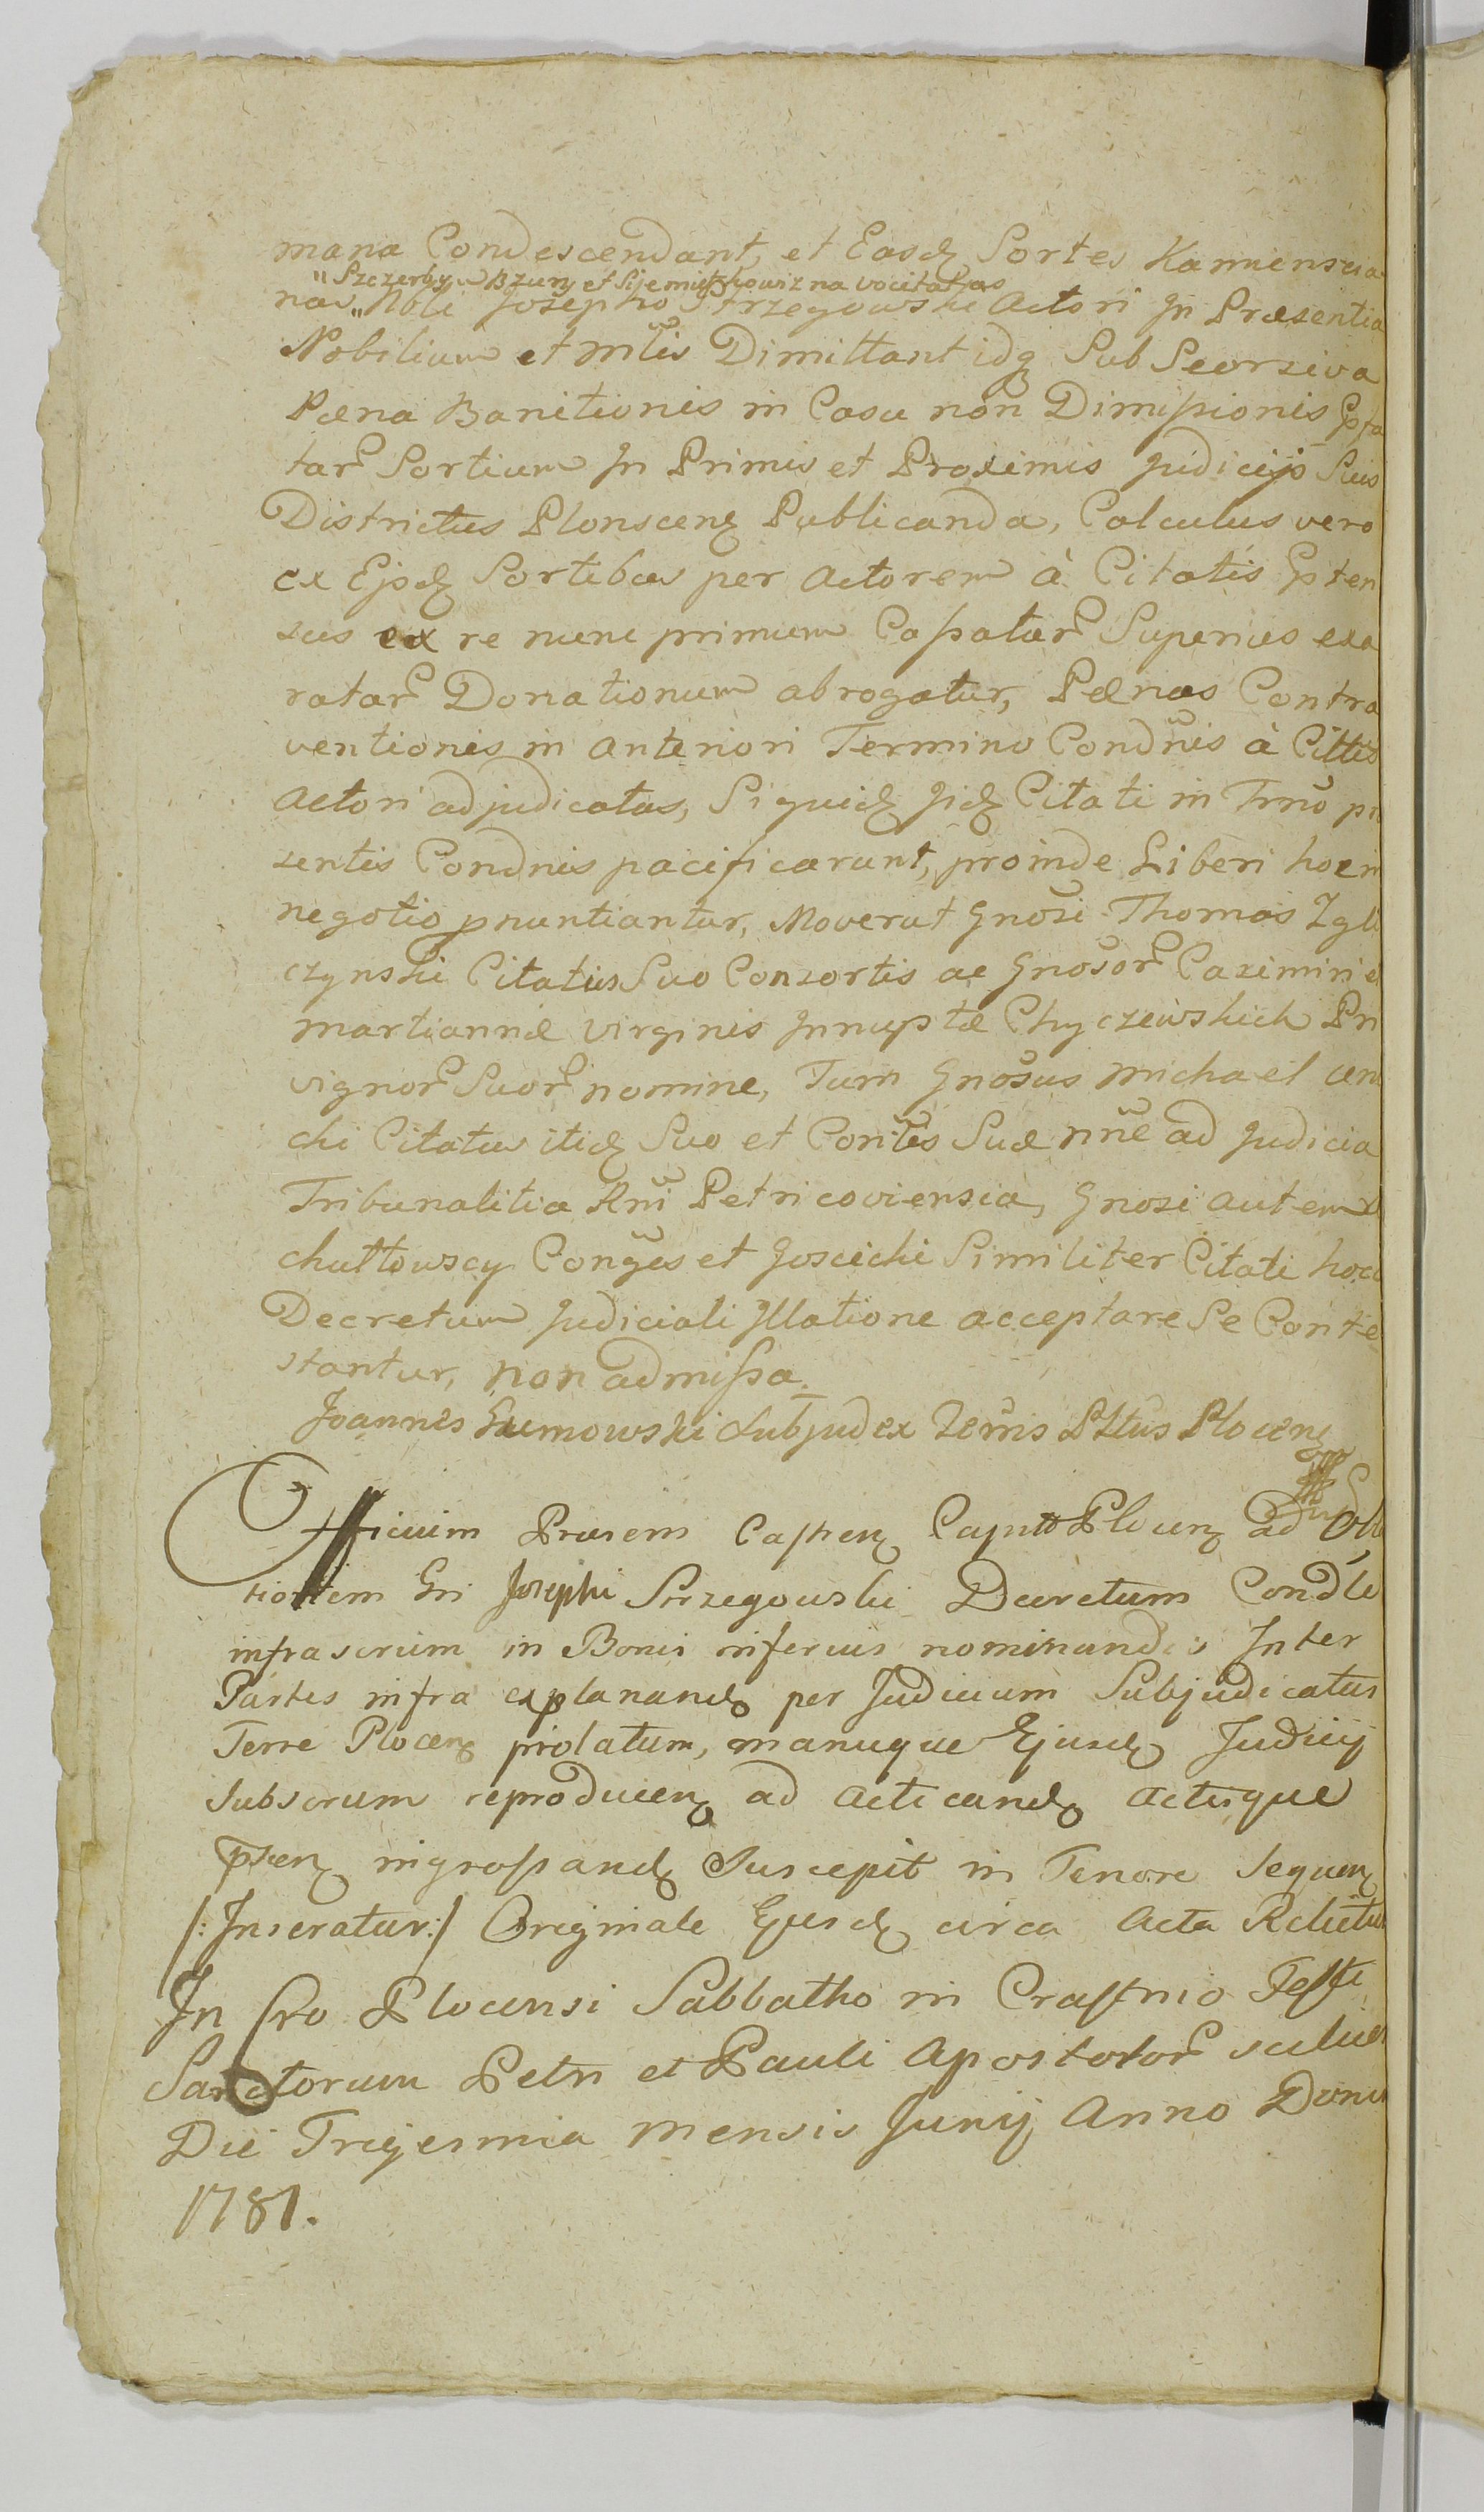 mana Condescendant, et Easdꝫ Sortes Kamienscia
"Szczerby, Bzury et Sijemiętkowizna vocitatas
nas „ Nobi Josepho Strzegowski Actori Jn Præsentia
Nobilium et mltis Dimittant idqꝫ Sub Seorsiva
Pæna Banitionis in Casu non Dimißionis Epfa
tar Sortium Jn Primis et Proximis Judicijs Suis
Districtus Plonscenꝫ Publicanda, Calculus vero
ex Ejsdꝫ Sortibus per Actorem à Citatis Epten
sus ex re nunc primum Caßatar Superius exa
ratar Donationum abrogatur, Pænas Contra
ventionis in anteriori Termino Condnis à Cittis
Actori adjudicatas, Siquidꝫ Jidꝫ Citati in Trno pr
sentis Condnis pacificarunt, proinde Liberi hoc in
negotio pnuntiantur, Moverut Gnosi Thomas Jgli
czynski Citatus Suo Consortis ac Gnosor Casimiri et
Martiannæ Virginis Jnnuptæ Chyczewskich Pri
vignor Suor nomine, Tum Gnosus Michael
chi Citatus itidꝫ Suo et Contis Suæ nne ad Judicia
Tribunalitia Rni Petricoviensia, Gnosi autem
chultowscy Conges et Goscicki Similiter Citati hocce
Decretum Judiciali Jllatione acceptare Se Conte
stantur, non admißa.
Joannes Gumowski Subjudex Terris Plltus Plocenꝫ
Officium Præsens Castrenꝫ Capntt Plocenꝫ ad Obla
tionem Gni Josephi Strzegowski Decretum Condle
infrascrum in Bonis inferius nominandis Inter
Partes infra explanandꝫ per Judicium Subjudicatus
Terre Plocenꝫ prolatum, manuque Ejusdꝫ Judicij
subscrum reproducenꝫ ad acticandꝫ actisque
pntenꝫ ingroßandꝫ Suscepit in Tenore Sequenꝫ
/: Inseratur :/ Originale Ejusdꝫ circa Acta Relictu
In Cro Plocensi Sabbatho in Crastino Festi
Sanctorum Petri et Pauli Apostolor scilicet
Die Trigesima mensis Junij Anno Domi
1781.